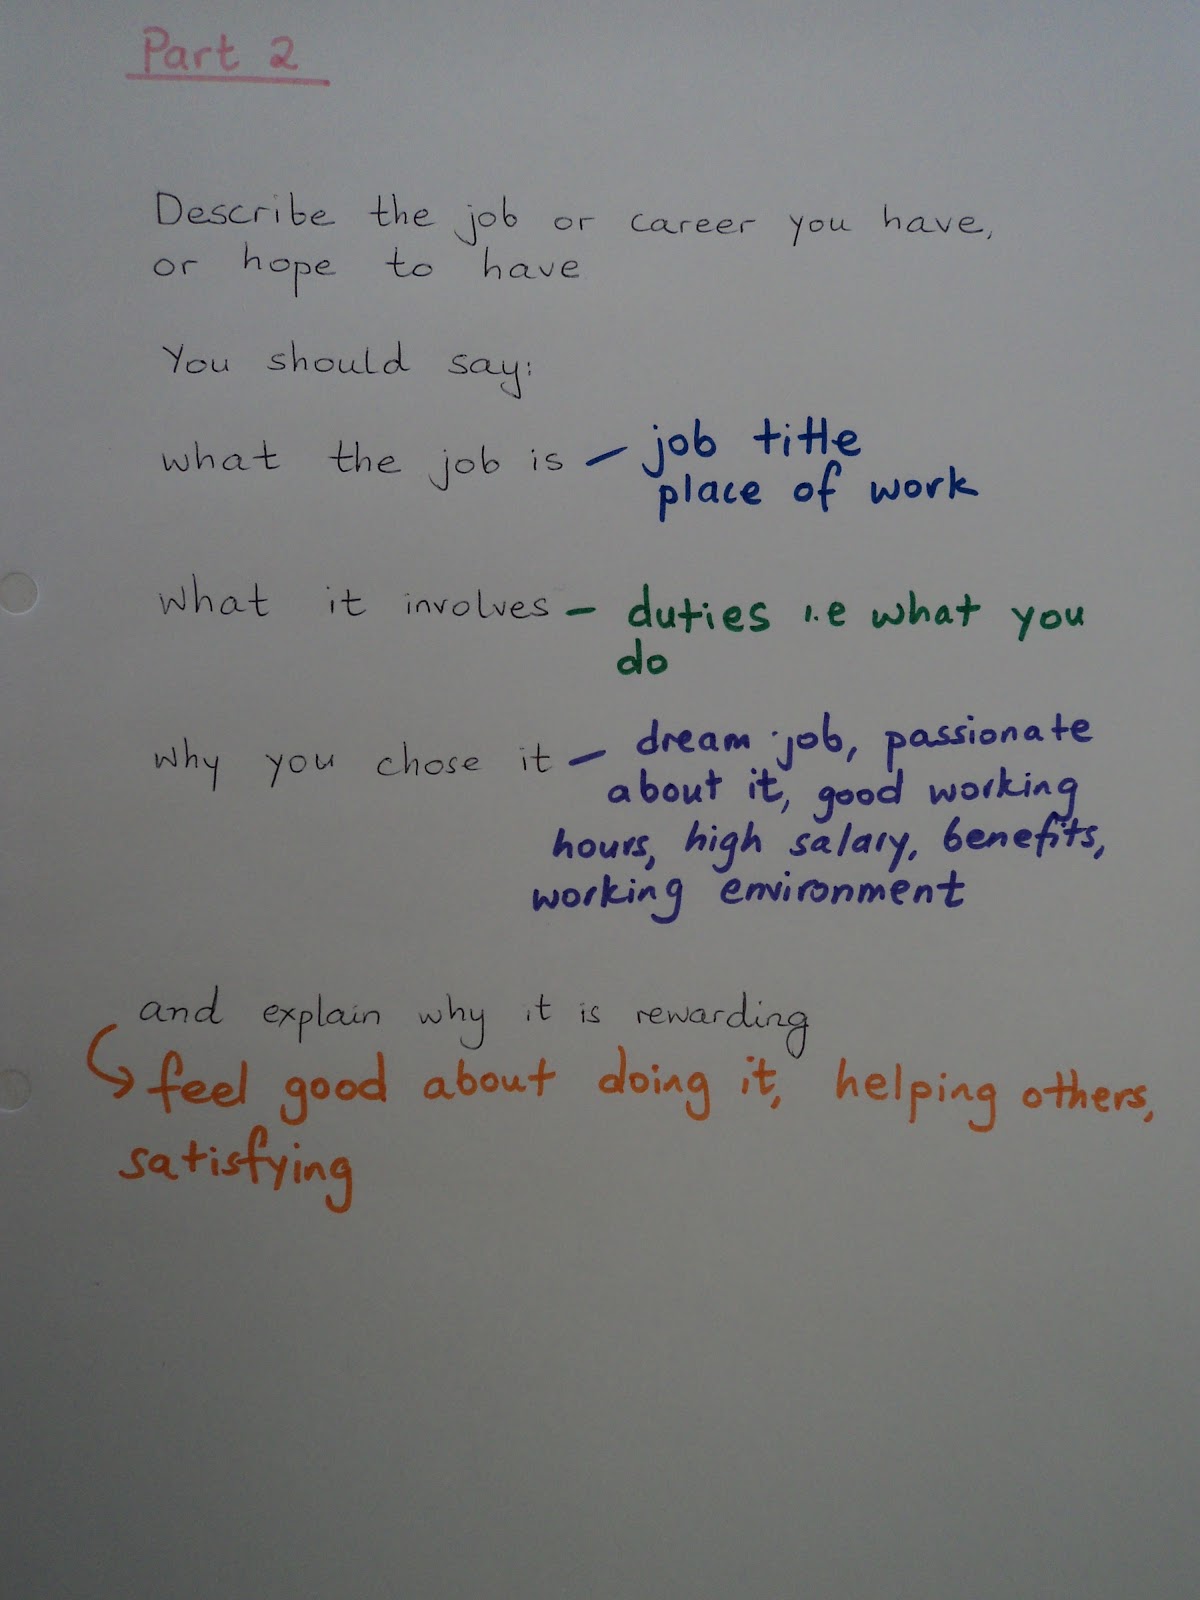 Part 2
Describe the job or career you have,
or hope to have
You should say:
what the job is – job title
place of work
what it involves – duties i.e what you
do
why you chose it – dream job, passionate
about it, good working
hours, high salary, benefits,
working environment
and explain why it is rewarding
feel good about doing it, helping others,
satisfying